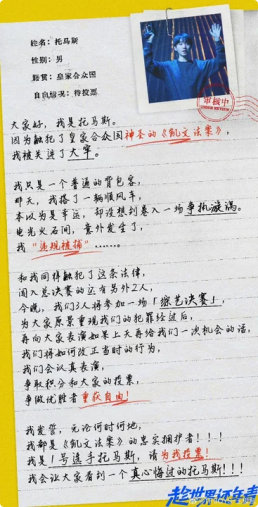 姓名：托马斯
性别：男
籍贯：皇家合众国
自由情况：待投票
审核中
大家好，我是托马斯。
因为触犯了皇家合众国神圣的《凯文法案》，
我被关进了大牢。
我只是一个普通的背包客，
那天，我搭了一辆顺风车，
本以为是幸运，却没想到卷入一场争执漩涡。
电光火石间，意外发生了，
我“违规被捕”……。
和我同样触犯了这条法律，
闯入总决赛的还有另外2人，
今晚，我们3人将参加一场「综艺决赛」，
为大家原景重现我们的犯罪经过后，
再向大家表演如果上天再给我们一次机会的话，
我们将如何改正当时的行为，
我们会认真表演，
争取积分和大家的投票，
争做优胜者重获自由！
我发誓，无论何时何地，
我都是《凯文法案》的忠实拥护者！！！
我是1号选手托马斯，请为我投票！
我会让大家看到一个真心悔过的托马斯！！！
趁世界还年青